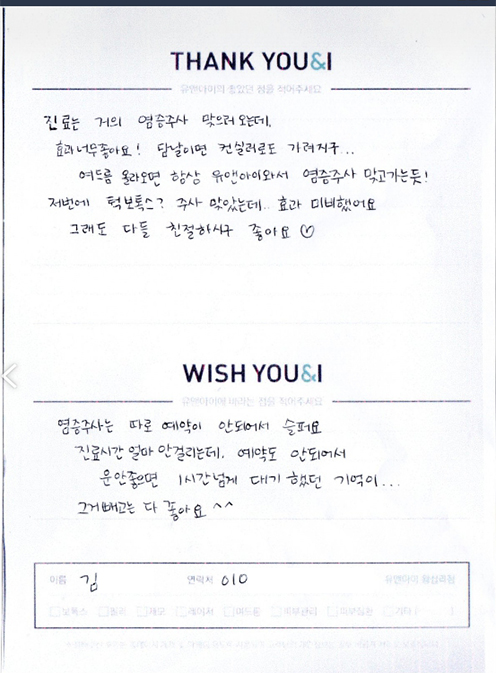 THANK YOU&I
유앤아이의 좋았던 점을 적어주세요
진료는 거의 염증주사 맞으러 오는데,
효과너무좋아요! 담날이면 컨실러로도 가려지구...
여드름 올라오면 항상 유앤아이와서 염증주사 맞고가는듯!
저번에 턱보톡스? 주사 맞았는데.. 효과 미비했어요
그래도 다들 친절하시구 좋아요♡
WISH YOU&I
유앤아이에 바라는 점을 적어주세요
염증주사는 따로 예약이 안되어서 슬퍼요
진료시간 얼마 안걸리는데, 예약도 안되어서
운안좋으면 1시간넘게 대기 했던 기억이...
그거빼고는 다 좋아요^^
이름 김 연락처 010 유앤아이
보톡스 필러 제모 레이저 여드름 피부관리 기타 (